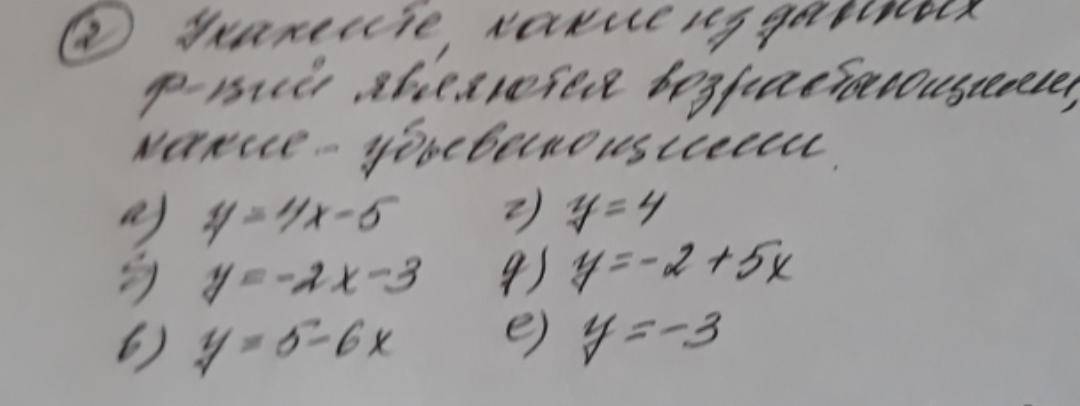 2 Укажите, какие из данных
ф-ций являются возрастающими,
какие - убывающими.
а) y=4x-5 г) y=4
б) y=-2x-3 д) y=-2+5x
в) y=5-6x е) y=-3